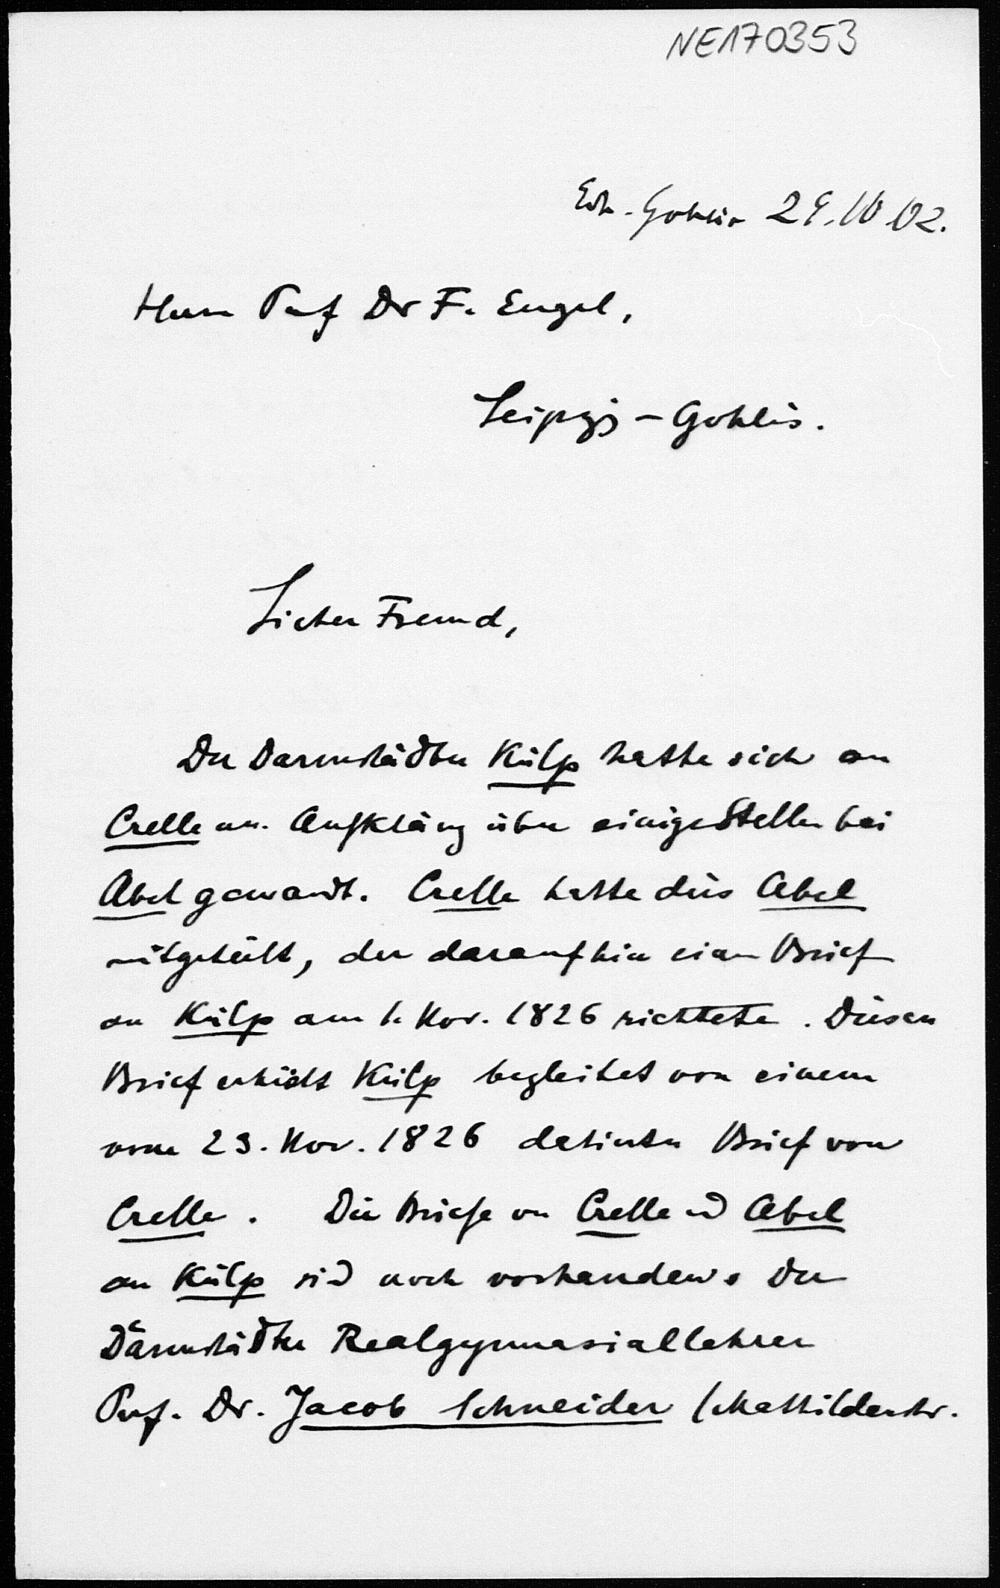 NE170353
Gohlis 29.10.02.
Herrn Prof Dr F. Engel,
Leipzig - Gohlis.
Lieber Freund,
Der Darmstädter Külp hatte sich an
Crelle um Aufklärung über einige Stellen bei
Abel gewandt. Crelle hatte dies Abel
mitgeteilt, der daraufhin einen Brief
an Külp am 1. Nov. 1826 richtete. Diesen
Brief erhielt Külp begleitet von einem
vom 23. Nov. 1826 datierten Brief von
Crelle. Die Briefe von Crelle und Abel
an Külp sind noch vorhanden. Der
Darmstädter Realgymnasiallehrer
Prof. Dr. Jacob Schneider (Mathildenstr.